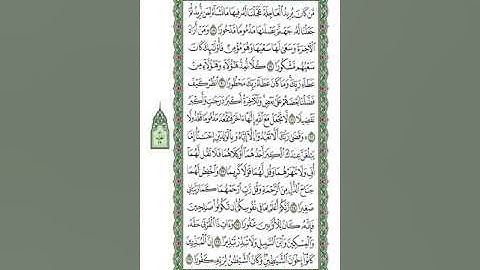 مَّن كَانَ يُرِيدُ ٱلْعَاجِلَةَ عَجَّلْنَا لَهُۥ فِيهَا مَا نَشَآءُ لِمَن نُّرِيدُ ثُمَّ
جَعَلْنَا لَهُۥ جَهَنَّمَ يَصْلَىٰهَا مَذْمُومًا مَّدْحُورًا ١٨ وَمَنْ أَرَادَ
ٱلْءَاخِرَةَ وَسَعَىٰ لَهَا سَعْيَهَا وَهُوَ مُؤْمِنٌ فَأُو۟لَٰٓئِكَ كَانَ
سَعْيُهُم مَّشْكُورًا ١٩ كُلًّا نُّمِدُّ هَٰٓؤُلَآءِ وَهَٰٓؤُلَآءِ مِنْ
عَطَآءِ رَبِّكَ وَمَا كَانَ عَطَآءُ رَبِّكَ مَحْظُورًا ٢٠ ٱنظُرْ كَيْفَ
فَضَّلْنَا بَعْضَهُمْ عَلَىٰ بَعْضٍ وَلَلْءَاخِرَةُ أَكْبَرُ دَرَجَٰتٍ وَأَكْبَرُ
تَفْضِيلًا ٢١ لَّا تَجْعَلْ مَعَ ٱللَّهِ إِلَٰهًا ءَاخَرَ فَتَقْعُدَ مَذْمُومًا مَّخْذُولًا
٢٢ ۞ وَقَضَىٰ رَبُّكَ أَلَّا تَعْبُدُوٓا۟ إِلَّآ إِيَّاهُ وَبِٱلْوَٰلِدَيْنِ إِحْسَٰنًا إِمَّا
يَبْلُغَنَّ عِندَكَ ٱلْكِبَرَ أَحَدُهُمَآ أَوْ كِلَاهُمَا فَلَا تَقُل لَّهُمَآ
أُفٍّ وَلَا تَنْهَرْهُمَا وَقُل لَّهُمَا قَوْلًا كَرِيمًا ٢٣ وَٱخْفِضْ لَهُمَا
جَنَاحَ ٱلذُّلِّ مِنَ ٱلرَّحْمَةِ وَقُل رَّبِّ ٱرْحَمْهُمَا كَمَا رَبَّيَانِي
صَغِيرًا ٢٤ رَّبُّكُمْ أَعْلَمُ بِمَا فِي نُفُوسِكُمْ إِن تَكُونُوا۟ صَٰلِحِينَ
فَإِنَّهُۥ كَانَ لِلْأَوَّٰبِينَ غَفُورًا ٢٥ وَءَاتِ ذَا ٱلْقُرْبَىٰ حَقَّهُۥ
وَٱلْمِسْكِينَ وَٱبْنَ ٱلسَّبِيلِ وَلَا تُبَذِّرْ تَبْذِيرًا ٢٦ إِنَّ ٱلْمُبَذِّرِينَ
كَانُوٓا۟ إِخْوَٰنَ ٱلشَّيَٰطِينِ وَكَانَ ٱلشَّيْطَٰنُ لِرَبِّهِۦ كَفُورًا ٢٧